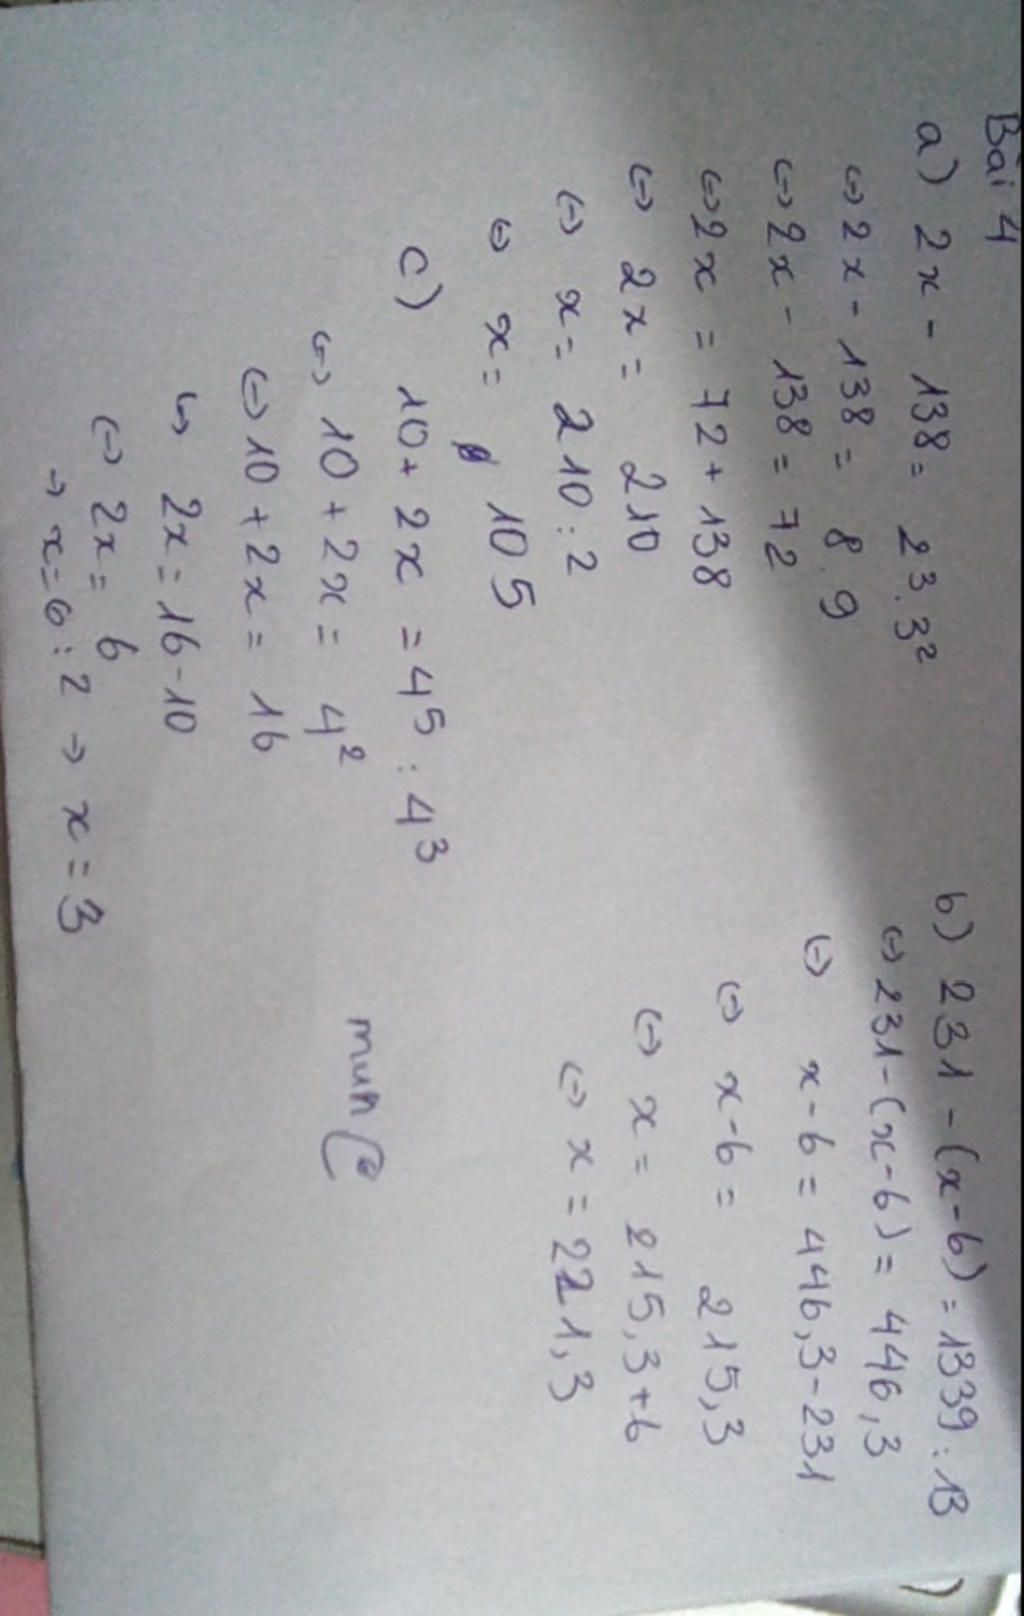 Bài 4
a) 2x - 138 = 2³.3²
(-) 2x - 138 = 8.9
(-) 2x - 138 = 72
(-) 2x = 72 + 138
(-) 2x = 210
(-) x = 210 : 2
(-) x = 105
c) 10 + 2x = 4⁵ : 4³
(-) 10 + 2x = 4²
(-) 10 + 2x = 16
↪ 2x = 16 - 10
(-) 2x = 6
→ x = 6 : 2 → x = 3
b) 231 - (x - 6) = 1339 : 13
(-) 231 - (x - 6) = 446,3
(-) x - 6 = 446,3 - 231
(-) x - 6 = 215,3
(-) x = 215,3 + 6
(-) x = 221,3
mun